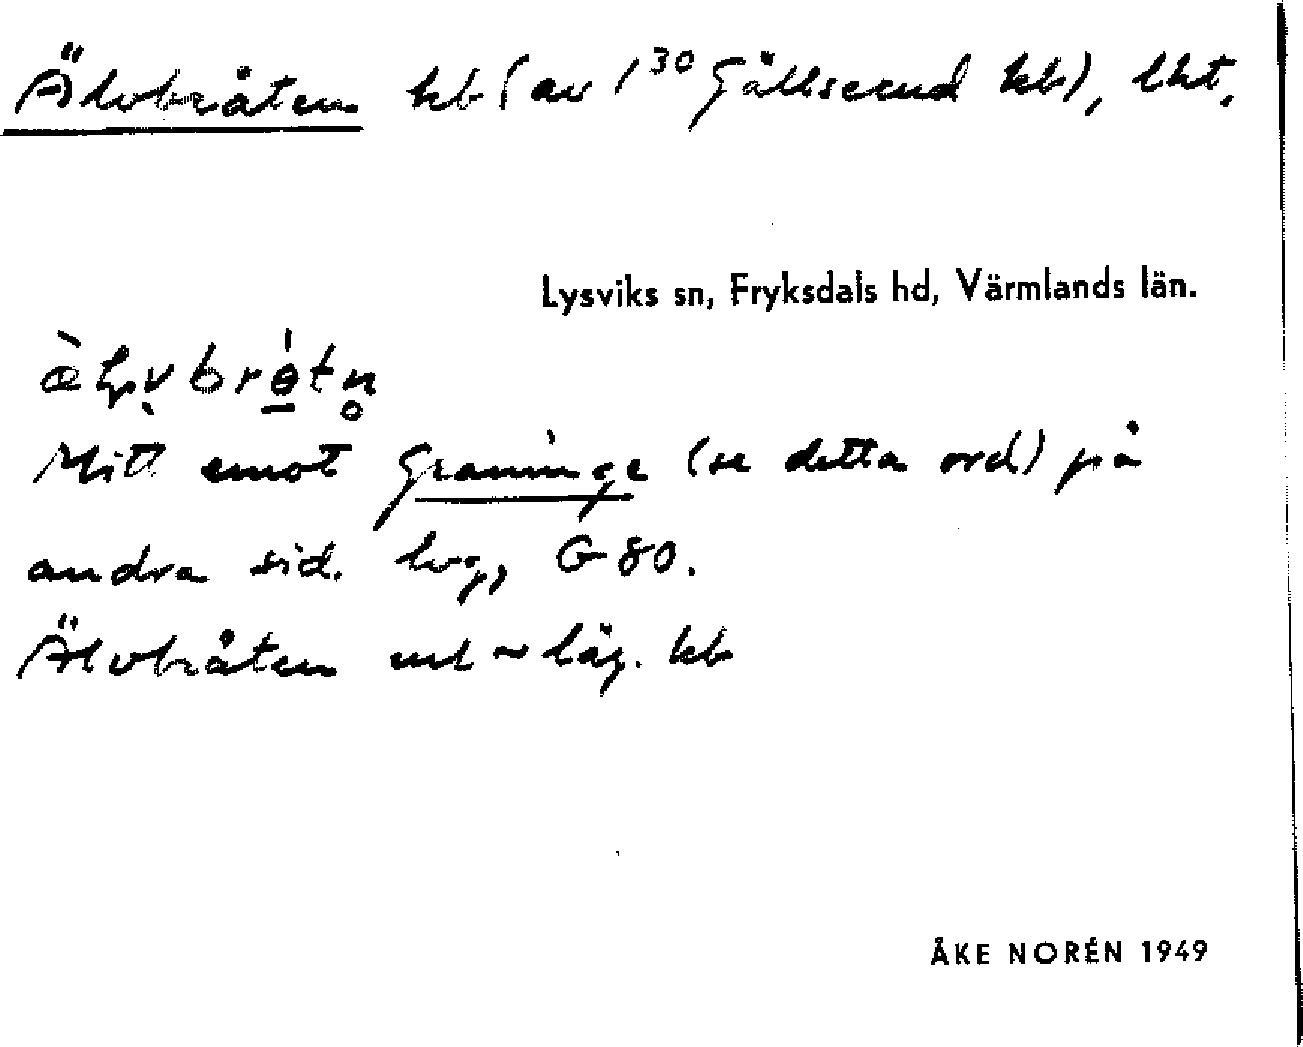 Älvbråten hb (av 1³⁰ Gällserud hb), lht.
Lysviks sn, Fryksdals hd, Värmlands län.
Mitt emot Graninge (se detta ord) på
andra sid. lvg, G 80.
Älvbråten url ~ läg. hb
ÅKE NORÉN 1949